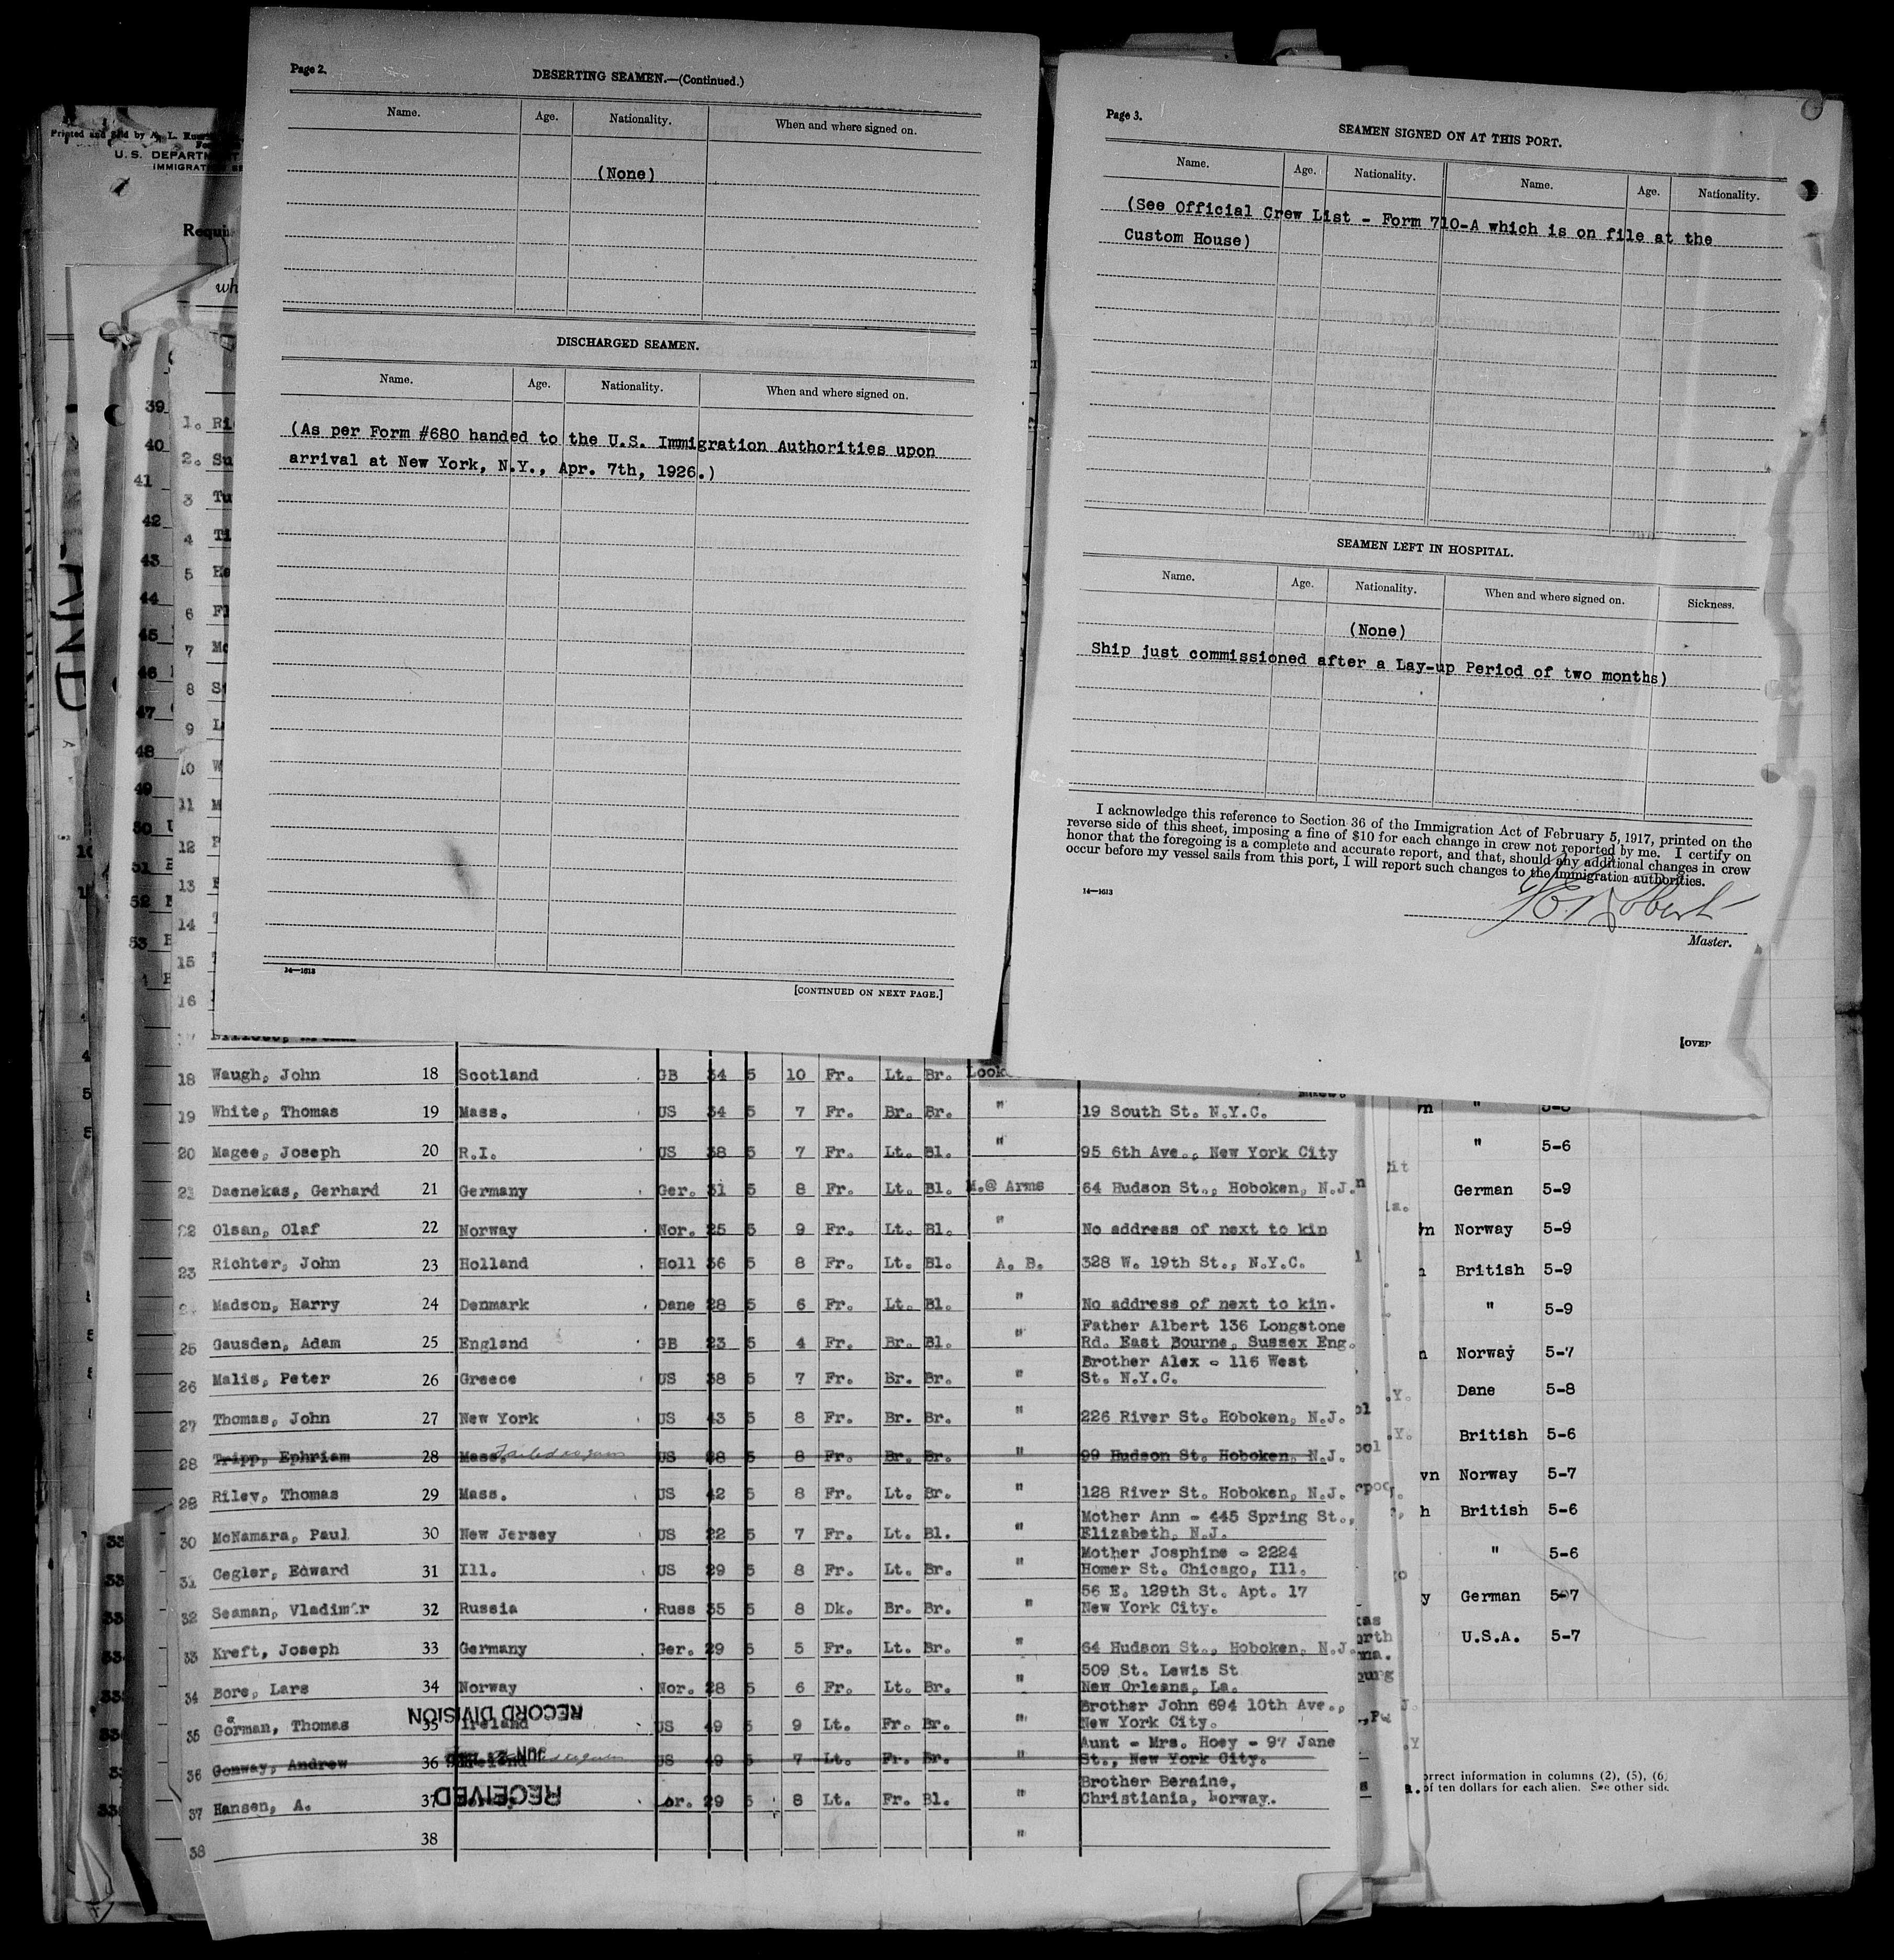 Page 2.
DESERTING SEAMEN.—(Continued.)
Name. Age. Nationality. When and where signed on.
(None)
DISCHARGED SEAMEN.
Name. Age. Nationality. When and where signed on.
(As per Form #680 handed to the U.S. Immigration Authorities upon
arrival at New York, N.Y., Apr. 7th, 1926.)
14—1613
[CONTINUED ON NEXT PAGE.]
Page 3.
SEAMEN SIGNED ON AT THIS PORT.
Name. Age. Nationality. Name. Age. Nationality.
(See Official Crew List - Form 710-A which is on file at the
Custom House)
SEAMEN LEFT IN HOSPITAL.
Name. Age. Nationality. When and where signed on. Sickness.
(None)
Ship just commissioned after a Lay-up Period of two months)
I acknowledge this reference to Section 36 of the Immigration Act of February 5, 1917, printed on the
reverse side of this sheet, imposing a fine of $10 for each change in crew not reported by me. I certify on
honor that the foregoing is a complete and accurate report, and that, should any additional changes in crew
occur before my vessel sails from this port, I will report such changes to the immigration authorities.
14—1613
Master.
[OVER
Printed and Sold by
U. S. DEPARTM
IMMIGRAT
39
40
41
42
43
44
45
46
47
48
49
50
51
52
53
1.
2.
3
4
5
6
7
8
9
10
11
12
13
14
15
16
18 Waugh, John 18 Scotland GB 34 5 10 Fr. Lt. Br. Look
19 White, Thomas 19 Mass. US 34 5 7 Fr. Br. Br. " 19 South St. N.Y.C.
20 Magee, Joseph 20 R.I. US 38 5 7 Fr. Lt. Bl. " 95 6th Ave., New York City
21 Daenekas, Gerhard 21 Germany Ger. 31 5 8 Fr. Lt. Bl. M.@ Arms 64 Hudson St., Hoboken, N.J.
22 Olsan, Olaf 22 Norway Nor. 25 5 9 Fr. Lt. Bl. " No address of next to kin
23 Richter, John 23 Holland Holl 36 5 8 Fr. Lt. Bl. A. B. 328 W. 19th St., N.Y.C.
24 Madson, Harry 24 Denmark Dane 28 5 6 Fr. Lt. Bl. " No address of next to kin.
25 Gausden, Adam 25 England GB 23 5 4 Fr. Br. Bl. " Father Albert 136 Longstone
Rd. East Bourne, Sussex Eng.
26 Malis, Peter 26 Greece US 38 5 7 Fr. Br. Br. " Brother Alex - 116 West
St. N.Y.C.
27 Thomas, John 27 New York US 43 5 8 Fr. Br. Br. " 226 River St. Hoboken, N.J.
28 Tripp, Ephriam 28 Mass. Failed to join US 38 5 8 Fr. Br. Br. " 99 Hudson St. Hoboken, N.J.
29 Riley, Thomas 29 Mass. US 42 5 8 Fr. Lt. Br. " 128 River St. Hoboken, N.J.
30 McNamara, Paul 30 New Jersey US 22 5 7 Fr. Lt. Bl. " Mother Ann - 445 Spring St.,
Elizabeth, N.J.
31 Cegler, Edward 31 Ill. US 29 5 8 Fr. Lt. Br. " Mother Josphine - 2224
Homer St. Chicago, Ill.
32 Seaman, Vladimir 32 Russia Russ 35 5 8 Dk. Br. Br. " 56 E. 129th St. Apt. 17
New York City.
33 Kreft, Joseph 33 Germany Ger. 29 5 5 Fr. Lt. Br. " 64 Hudson St., Hoboken, N.J.
34 Bore, Lars 34 Norway Nor. 28 5 6 Fr. Lt. Br. " 509 St. Lewis St
New Orleans, La.
35 Gorman, Thomas 35 Ireland US 49 5 9 Lt. Fr. Br. " Brother John 694 10th Ave.,
New York City.
36 Conway, Andrew 36 Ireland US 49 5 7 Lt. Fr. Br. " Aunt - Mrs. Hoey - 97 Jane
St., New York City.
37 Hansen, A. 37 29 5 8 Lt. Fr. Bl. " Brother Beraine,
Christiania, Norway.
38 38 "
RECORD DIVISION
RECEIVED
" 5-6
German 5-9
Norway 5-9
British 5-9
" 5-9
Norway 5-7
Dane 5-8
British 5-6
Norway 5-7
British 5-6
" 5-6
German 5-7
U.S.A. 5-7
orrect information in columns (2), (5), (6)
of ten dollars for each alien. See other side